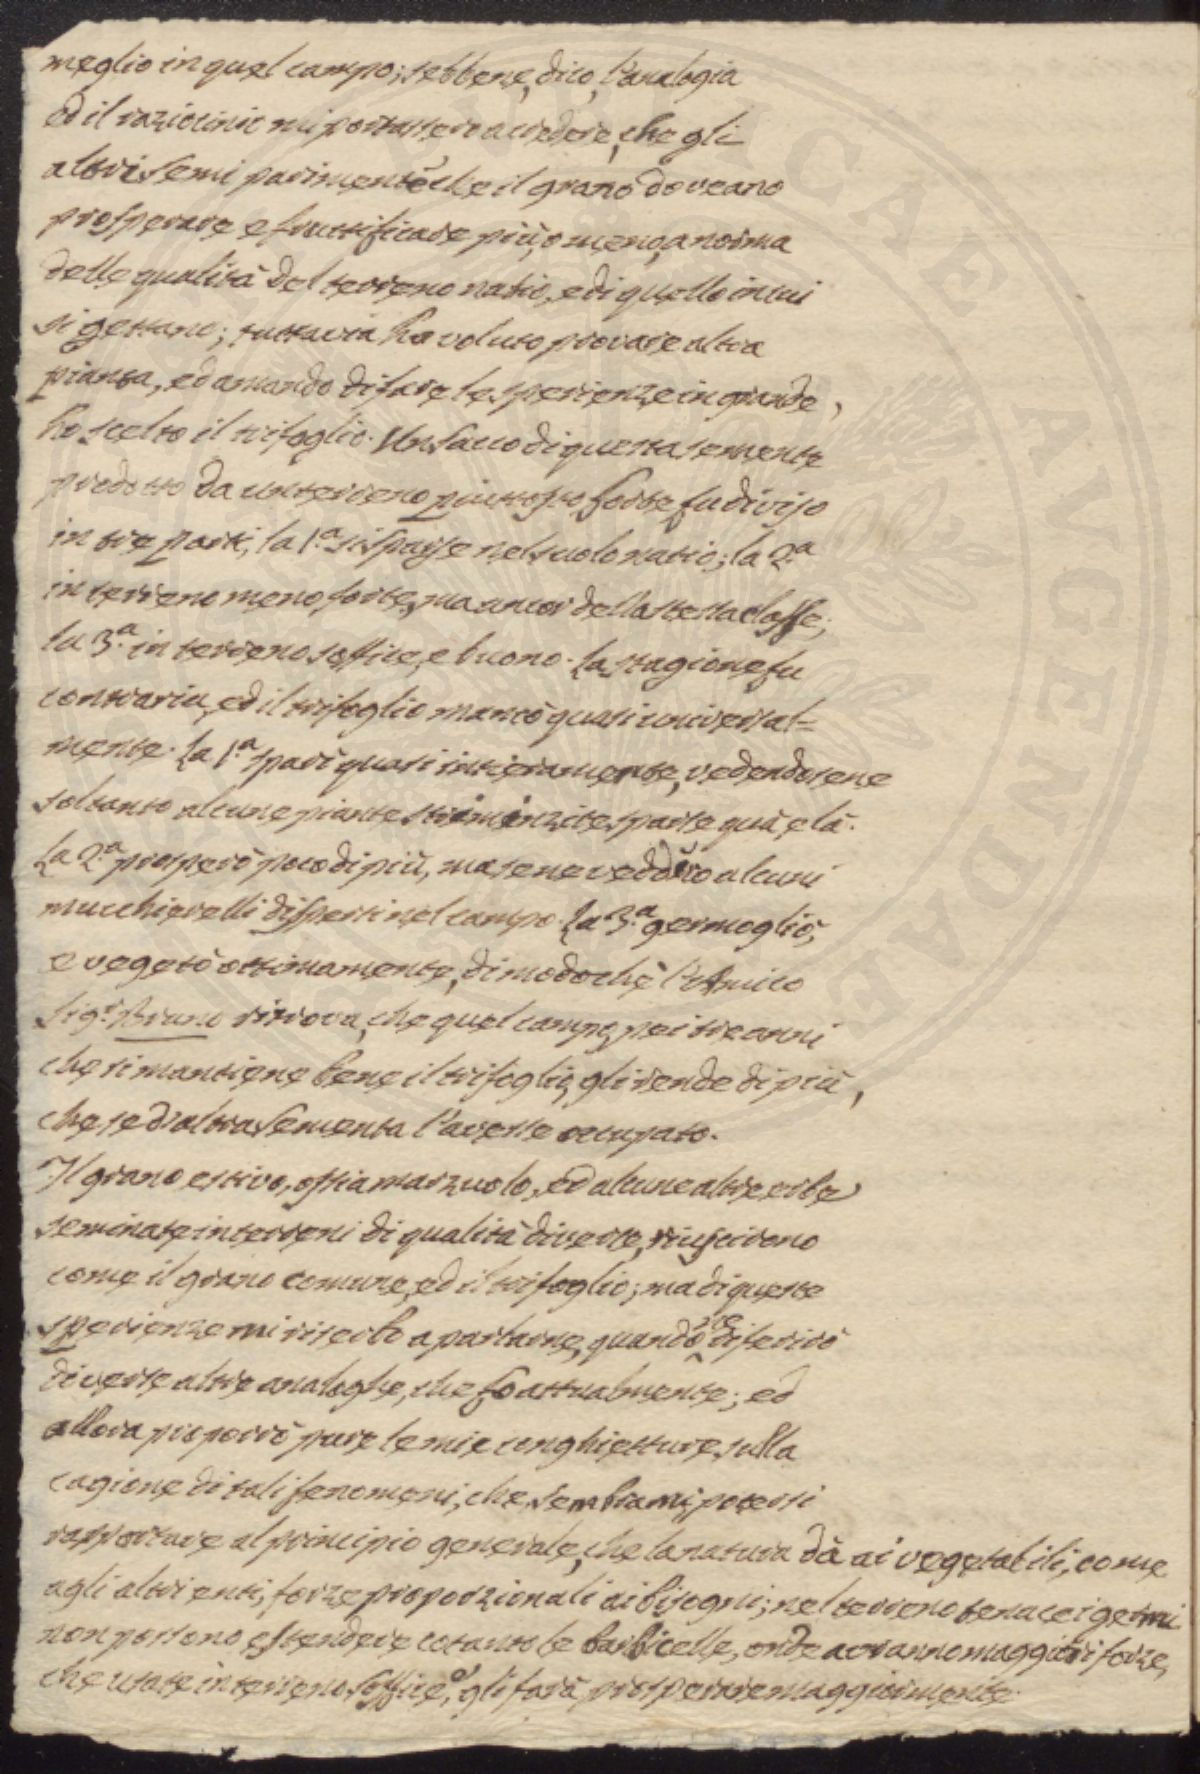 meglio in quel campo; sebbene, dico, l'analogia
ed il raziocinio mi portassero a credere, che gli
altri semi parimente che il grano doveano
prosperare e fruttificare più, o meno, a norma
delle qualità del terreno natio, e di quello in cui
si gettano; tuttavia ho voluto provare altra
pianta, ed amando di fare le sperienze in grande,
ho scelto il trifoglio. Un sacco di questa semente
prodotto da un terreno piuttosto forte fu diviso
in tre parti, la 1.ª si sparse nel suolo natio; la 2.ª
in terreno meno forte, ma ancor della stessa classe;
la 3.ª in terreno soffice, e buono. La stagione fu
contraria, ed il trifoglio mancò quasi universal=
mente. La 1.ª sparì quasi intieramente, vedendosene
soltanto alcune piante striminzite sparse quà, e là.
La 2.ª prosperò poco di più, ma se ne veddero alcuni
mucchierelli dispersi nel campo. La 3.ª germogliò,
e vegetò ottimamente, di modo chè l'Amico
Sig.r Bruno ritrova, che quel campo, pei tre anni
che si mantiene bene il trifoglio, gli rende di più,
che se d'altra sementa l'avesse occupato.
Il grano estivo, ossia marzuolo, ed alcune altre erbe
seminate in terreni di qualità diverse, riuscirono
come il grano comune, ed il trifoglio; ma di queste
sperienze mi riserbo a parlarne, quando ne riferirò
diverse altre analoghe, che fo attualmente; ed
allora proporrò pure le mie conghietture, sulla
cagione di tali fenomeni, che, sembrami, potersi
rapportare al principio generale, che la natura dà ai vegetabili, come
agli altri enti, forze proporzionali ai bisogni; nel terreno tenace i germi
non possono estendere cotanto le barbicelle, onde avranno maggiori forze,
che usate in terreno soffice, gli farà prosperare maggiormente.